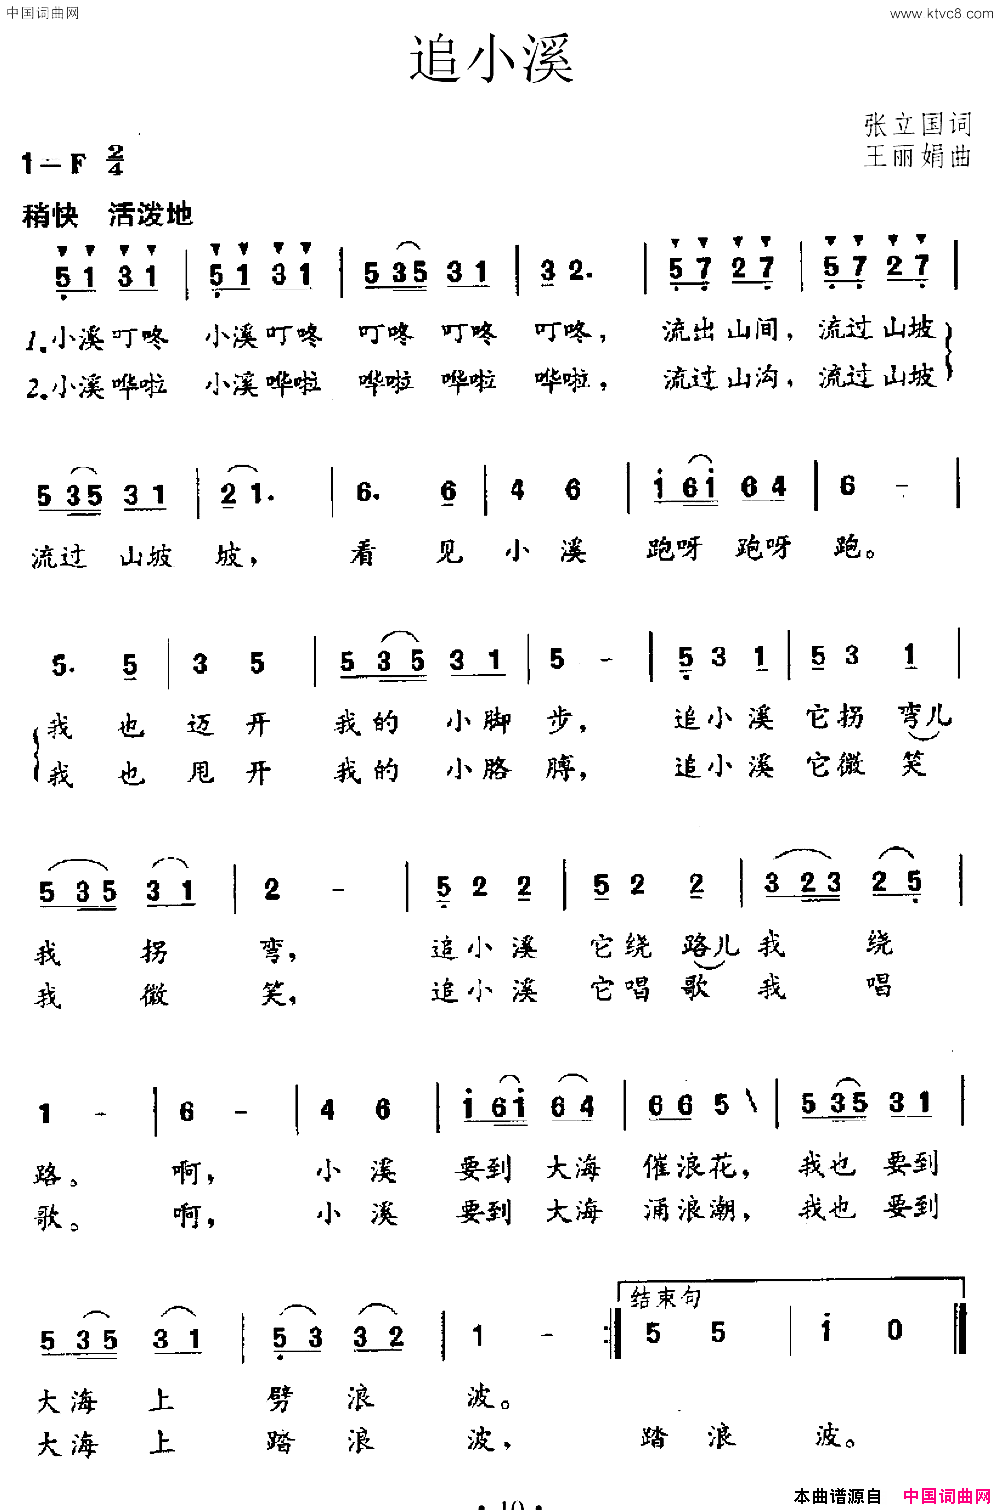 中国词曲网 www.ktvc8.com
追小溪
张立国词
1=F 2/4 王丽娟曲
稍快 活泼地
5131 | 5131 | 53531 | 32. | 5727 | 5727 |
1.小溪叮咚 小溪叮咚 叮咚 叮咚 叮咚, 流出山间, 流过山坡
2.小溪哗啦 小溪哗啦 哗啦 哗啦 哗啦, 流过山沟, 流过山坡
53531 | 21. | 6. 6 | 4 6 | i6i64 | 6 - |
流过 山坡 坡, 看 见 小 溪 跑呀 跑呀 跑。
5. 5 | 3 5 | 53531 | 5 - | 5 3 1 | 5 3 1 |
我 也 迈 开 我 的 小 脚 步, 追 小 溪 它 拐 弯儿
我 也 甩 开 我 的 小 胳 膊, 追 小 溪 它 微 笑
53531 | 2 - | 5 2 2 | 5 2 2 | 3 23 25 |
我 拐 弯, 追 小 溪 它 绕 路儿 我 绕
我 微 笑, 追 小 溪 它 唱 歌 我 唱
1 - | 6 - | 4 6 | i6i64 | 66 5 | 53531 |
路。 啊, 小 溪 要到 大海 催浪花, 我也 要到
歌。 啊, 小 溪 要到 大海 涌浪潮, 我也 要到
结束句
53531 | 53 32 | 1 - :| 5 5 | i 0 |
大海 上 劈 浪 波。
大海 上 踏 浪 波, 踏 浪 波。
· 10 ·
本曲谱源自 中国词曲网